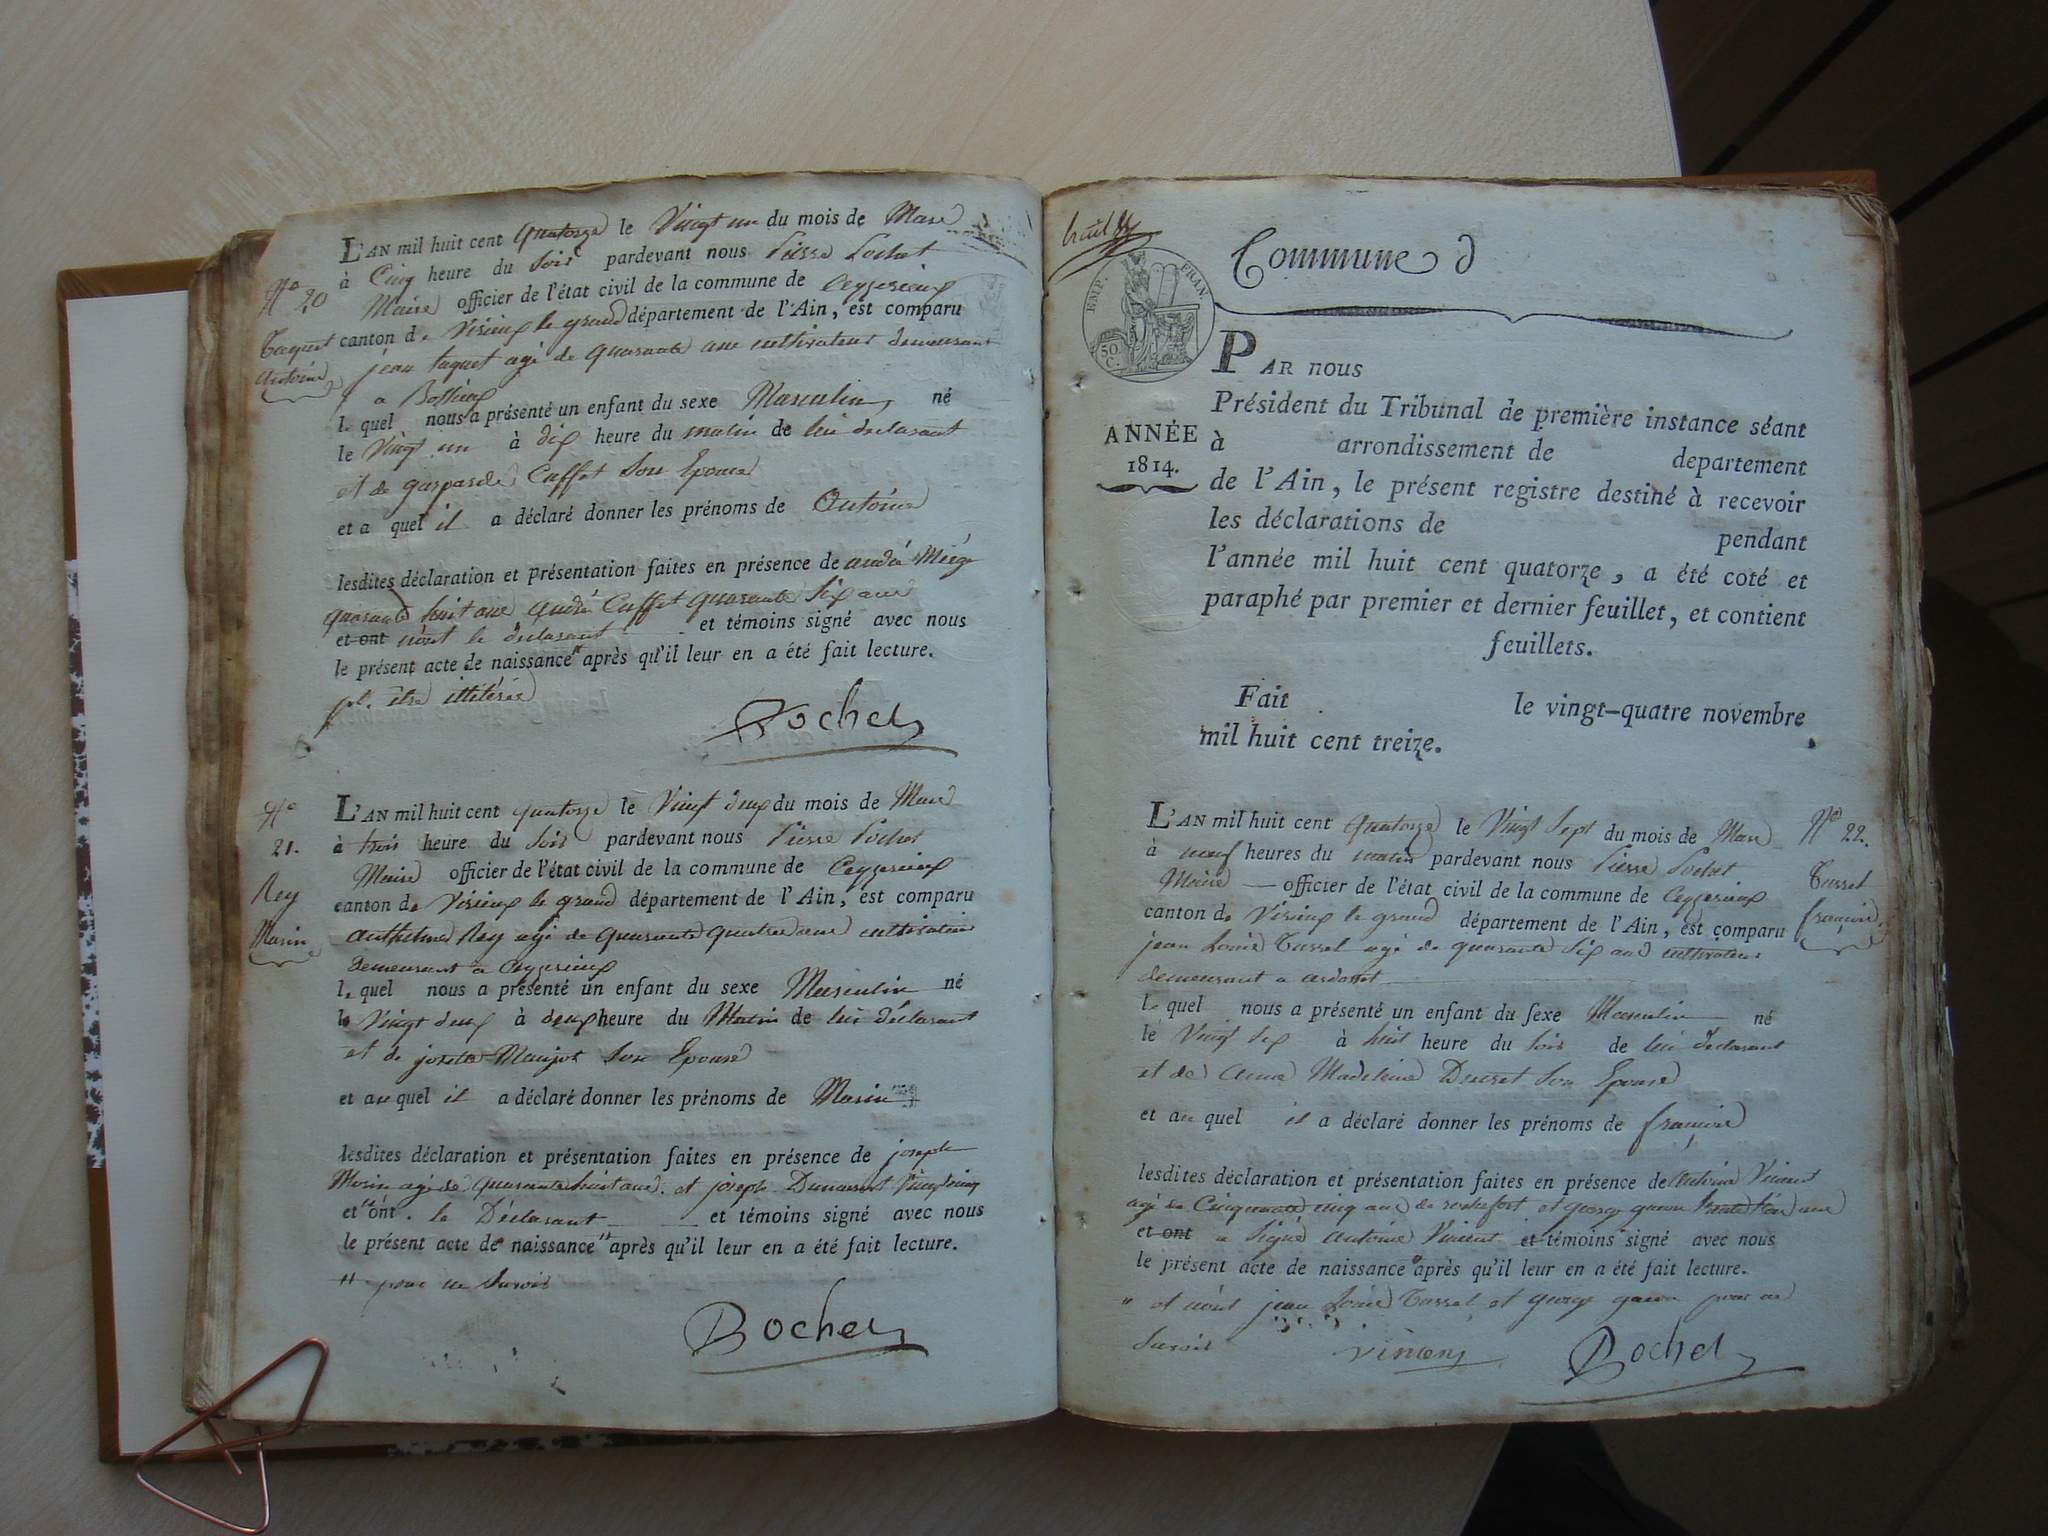 L'AN mil huit cent quatorze le Vingt un du mois de Mars
à Cinq heure du Soir pardevant nous Pierre Rochet
Maire officier de l'état civil de la commune de Ceyzerieux
canton de Virieux le grand département de l'Ain, est comparu
jean taquet agé de quarante ans cultivateur demeurant
a
le quel nous a présenté un enfant du sexe Masculin né
le Vingt un à dix heure du matin de lui declarant
et de gasparde Cuffet Son Epouse
et a quel il a déclaré donner les prénoms de Antoine
lesdites déclaration et présentation faites en présence de andré Miège
quarante huit ans andré Cuffet quarante Six ans
et ont n'ont le declarant et témoins signé avec nous
le présent acte de naissance" après qu'il leur en a été fait lecture.
être illitérés
Rochet
No 20
Taquet
Antoine
L'AN mil huit cent quatorze le Vingt deux du mois de Mars
à trois heure du Soir pardevant nous Pierre Rochet
Maire officier de l'état civil de la commune de Ceyzerieux
canton de Virieux le grand département de l'Ain, est comparu
anthelme Rey agé de quarante quatre ans cultivateur
demeurant a Ceyzerieux
le quel nous a présenté un enfant du sexe Masculin né
le Vingt deux à deux heure du Matin de lui déclarant
et de josette Son Epouse
et au quel il a déclaré donner les prénoms de Marin
lesdites déclaration et présentation faites en présence de joseph
Morin agé de quarante huit ans. et joseph
et "ont. le Déclarant et témoins signé avec nous
le présent acte de naissance" après qu'il leur en a été fait lecture.
" pour ne Savoir
Rochet
No
21.
Rey
Marin
Commune d
EMP. FRAN.
50 C.
ANNÉE
1814.
PAR nous
Président du Tribunal de première instance séant
à arrondissement de departement
de l'Ain, le présent registre destiné à recevoir
les déclarations de pendant
l'année mil huit cent quatorze, a été coté et
paraphé par premier et dernier feuillet, et contient
feuillets.
Fait le vingt-quatre novembre
mil huit cent treize.
L'AN mil huit cent quatorze le Vingt Sept du mois de Mars
à neuf heures du matin pardevant nous Pierre Rochet
Maire officier de l'état civil de la commune de Ceyzerieux
canton de Virieux le grand département de l'Ain, est comparu
jean Louis Tussel agé de quarante Six ans cultivateur
demeurant a ardosset
le quel nous a présenté un enfant du sexe Masculin né
le Vingt Six à huit heure du Soir de lui declarant
et de anne Madeleine Ducret Son Epouse
et au quel il a déclaré donner les prénoms de françois
lesdites déclaration et présentation faites en présence de Antoine Vincent
agé de Cinquante cinq ans de rochefort et george trente ans
et ont a Signé Antoine Vincent et témoins signé avec nous
le présent acte de naissance" après qu'il leur en a été fait lecture.
" et n'ont jean Louis Tussel et george pour ne
Savoir
Vincent
Rochet
No 22.
Tussel
françois